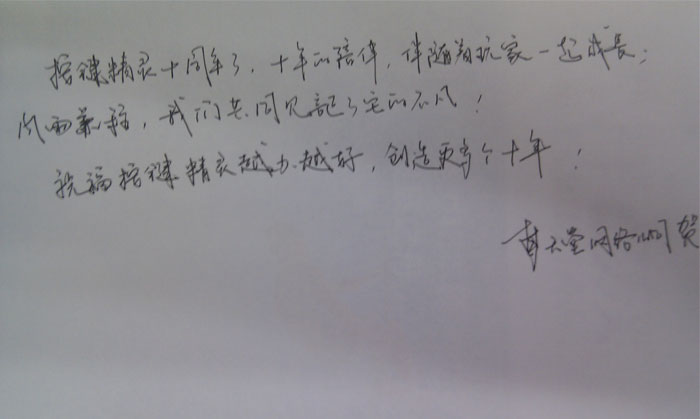 按键精灵十周年了，十年的陪伴，伴随着玩家一起成长；
风雨兼程，我们共同见证了它的不凡！
祝福按键精灵越办越好，创造更多个十年！
天堂网络 贺